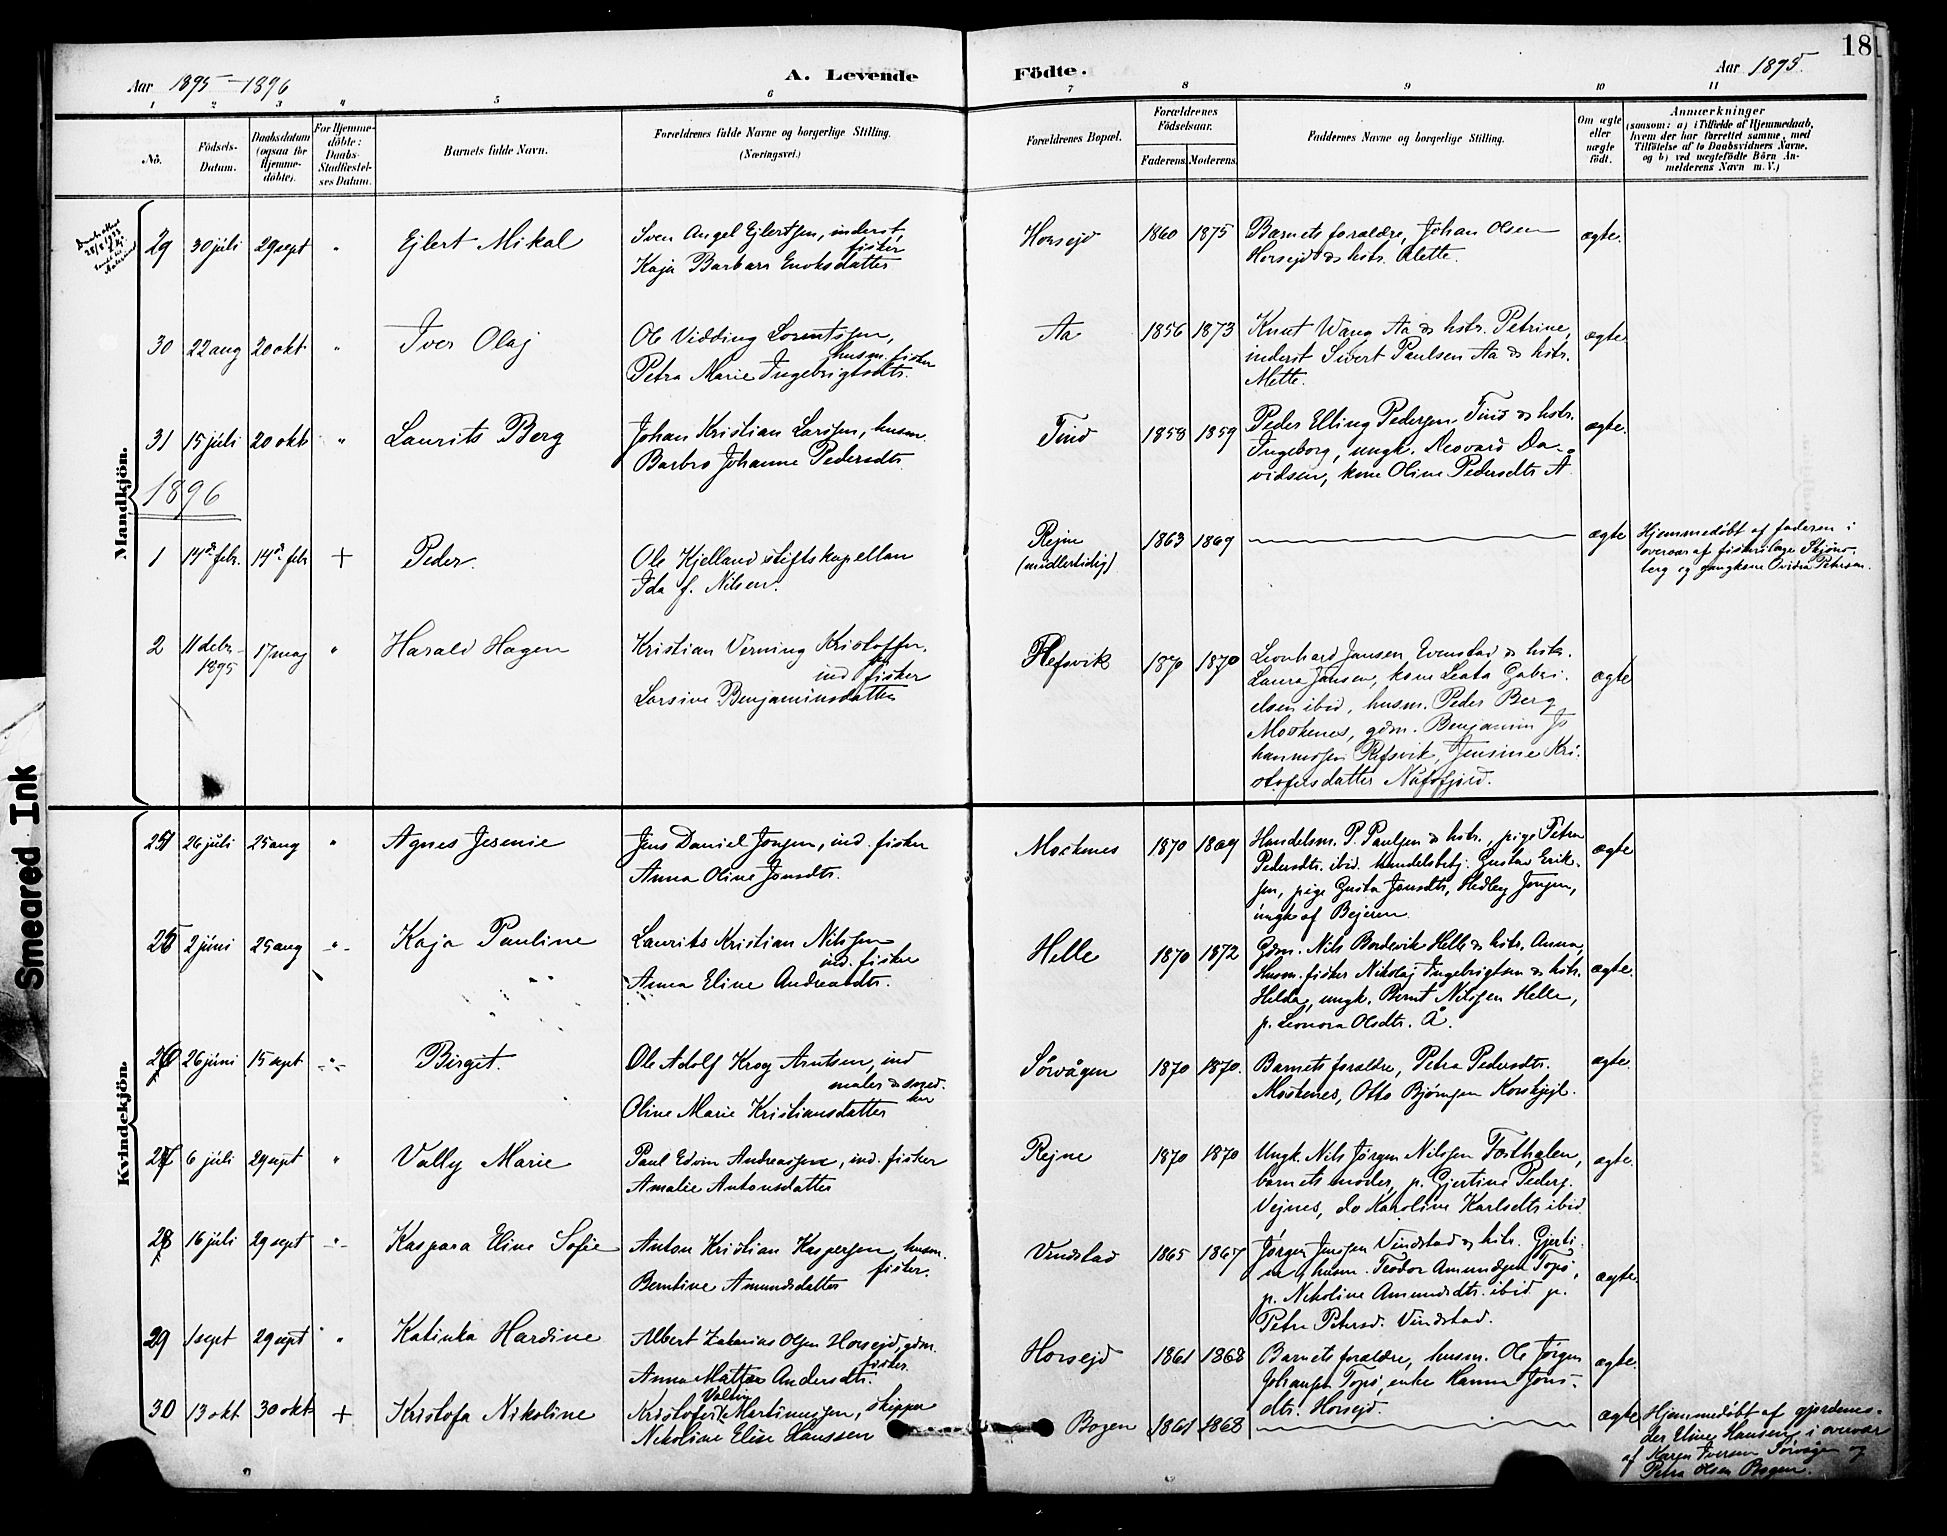 Aar 1895-1896
A. Levende
Födte.
Aar 1895.
18
1 2 3 4 5 6 7 8 9 10 11
No.
Födsels-
Datum.
Daabsdatum
(ogsaa for
Hjemme-
döbte).
For Hjemme-
döbte:
Daabs-
Stadfæstel-
ses Datum.
Barnets fulde Navn.
Forældrenes fulde Navne og borgerlige Stilling.
(Næringsvei.)
Forældrenes Bopæl.
Forældrenes
Födselsaar.
Faderens. Moderens.
Faddernes Navne og borgerlige Stilling.
Om ægte
eller
uægte
födt.
Anmærkninger
(saasom: a) i Tilfælde af Hjemmedaab,
hvem der har forrettet samme, med
Tilföielse af to Daabsvidners Navne,
og b) ved uægtefödte Börn An-
melderens Navn m. V.)
Mandkjön.
29 30 juli 29 sept " Ejlert Mikal
Sven Angel Ejlertsen, inderst,
fisker
Kaja Barbara Enoksdatter
Horsejd 1860 1875
Barnets forældre, Johan Olsen
Horsejd & hstr. Alette.
ægte.
30 22 aug 20 okt " Iver Olaj
Ole Vidding Lorentsen,
husm. fisker
Petra Marie Ingebrigtsdtr.
Aa 1856 1873
Knut Wang Aa & hstr. Petrine,
inderst Sivert Paulsen Aa & hstr.
Mette.
ægte
31 15 juli 20 okt " Laurits Berg
Johan Kristian Larsen, husm.
Barbro Johanne Pedersdtr.
Tind 1858 1859
Peder Elling Pedersen Tind & hstr.
Ingeborg, ungk. Da-
vidsen, kone Oline Pedersdtr Å
ægte.
1896
1 14de febr. 14de febr + Peder.
Ole Kjelland stiftskapellan
Ida f. Nilsen.
Rejne
(midlertidig)
1863 1869
ægte
Hjemmedøbt af faderen i
overvær af fiskerilæge
berg og gangkone Ovidia Peterson.
2 11 debr.
1895
17 maj " Harald Hagen
Kristian Verning Kristoffer-
sen ind fisker
Larsine Benjaminsdatter
Refsvik 1870 1870
Leonhard Jansen Evenstad & hstr.
Laura Jansen, kone Leata Gabri-
elsen ibid, husm. Peder Berg
Moskenes, gdm. Benjamin Jo
hannessen Refsvik, Jensine Kri-
stofersdatter Nufsfjord.
ægte
Kvindekjön.
24 26 juli 25 aug " Agnes Jesenie
Jens Daniel Jonsen, ind. fisker
Anna Oline Jonsdtr.
Moskenes 1870 1869
Handelsm. P. Paulsen & hstr., pige Petra
Pedersdtr. ibid. handelsbetj. Gustav Erik-
sen, pige Gusta Jonsdtr, Hedley Jonsen,
ungk af Bejeren.
ægte
25 2 juni 25 aug " Kaja Pauline
Laurits Kristian Nilssen
ind. fisker
Anna Eline Andreasdtr.
Helle 1870 1872
Gdm. Nils Bordevik Helle & hstr. Anna,
Husm. fisker Nikolaj Ingebrigtsen & hstr.
Helda, ungk. Bernt Nilssen Helle,
p. Leonora Olsdtr. Å.
ægte.
26 26 juni 15 sept " Birgit.
Ole Adolf Krog Arntsen, ind
maler & sned-
ker
Oline Marie Kristiansdatter
Sörvågen 1870 1870.
Barnets forældre, Petra Pedersdtr.
Moskenes, Otto Bjørnsen
ægte.
27 6 juli 29 sept " Vally Marie
Paul Edvin Andreassen, ind. fisker
Amalie Antonsdatter
Rejne 1870 1870
Ungk. Nils Jørgen Nilssen Tosthalen,
barnets moder, p. Gjertine Peders.
Vejnes, do Karoline Karlsdtr ibid
ægte.
28 16 juli 29 sept " Kaspara Eline Sofie
Anton Kristian Kaspersen, husm.
fisker.
Berntine Amundsdatter
Vindstad 1865 1867
Jørgen Jenssen Vindstad & hstr. Gjerti-
ne, husm. Teodor Amundsen Topø,
p. Nikoline Amundsdtr. ibid p.
Petra Petersd. Vindstad.
ægte.
29 1 sept 29 sept " Katinka Hardine
Albert Zakarias Olsen Horsejd, gdm.
fisker.
Anna Martha Andersdtr.
Horsejd 1861 1868
Barnets forældre, husm. Ole Jørgen
Johansen Topø, enke Hanna Jons-
dtr. Horsejd.
ægte.
30 13 okt 30 okt + Kristofa Nikoline
Kristofer Martinussen, skipper
Nikoline Elise Hanssen
Bogen 1861 1868
ægte
Hjemmedøbt af gjordemo-
der Eline Hansen i overvær
af Maren Iversen Sørvågen og
Petra Olsen Bogen.
Smeared Ink